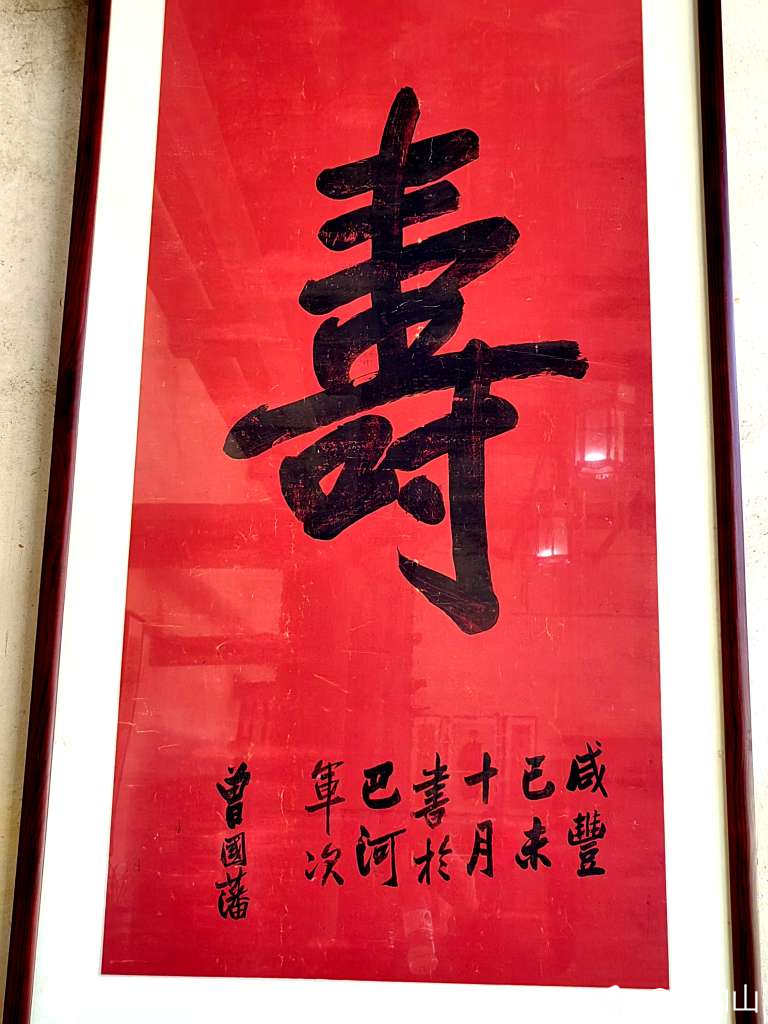 壽
咸豐
己未
十月
書於
巴河
軍次
曾國藩
山